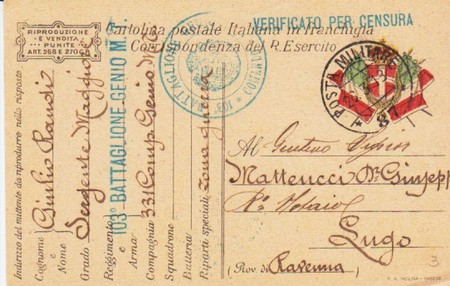 RIPRODUZIONE
E VENDITA
PUNITE
ART. 268 E 270 C.P.
Cartolina postale Italiana in franchigia
Corrispondenza del R. Esercito
VERIFICATO PER CENSURA
POSTA MILITARE
BATTAGLIONE
Indirizzo del mittente da riprodurre nella risposta
Cognome e Nome Giulio Randi
Grado Sergente Maggiore
Reggimento e Arma
103° BATTAGLIONE GENIO M.
Compagnia 331 Comp. Genio
Squadrone
Batteria
Riparti speciali Zona guerra
Al
Matteucci Dr. Giusepp
Notaio
Lugo
(Prov. di Ravenna)
3